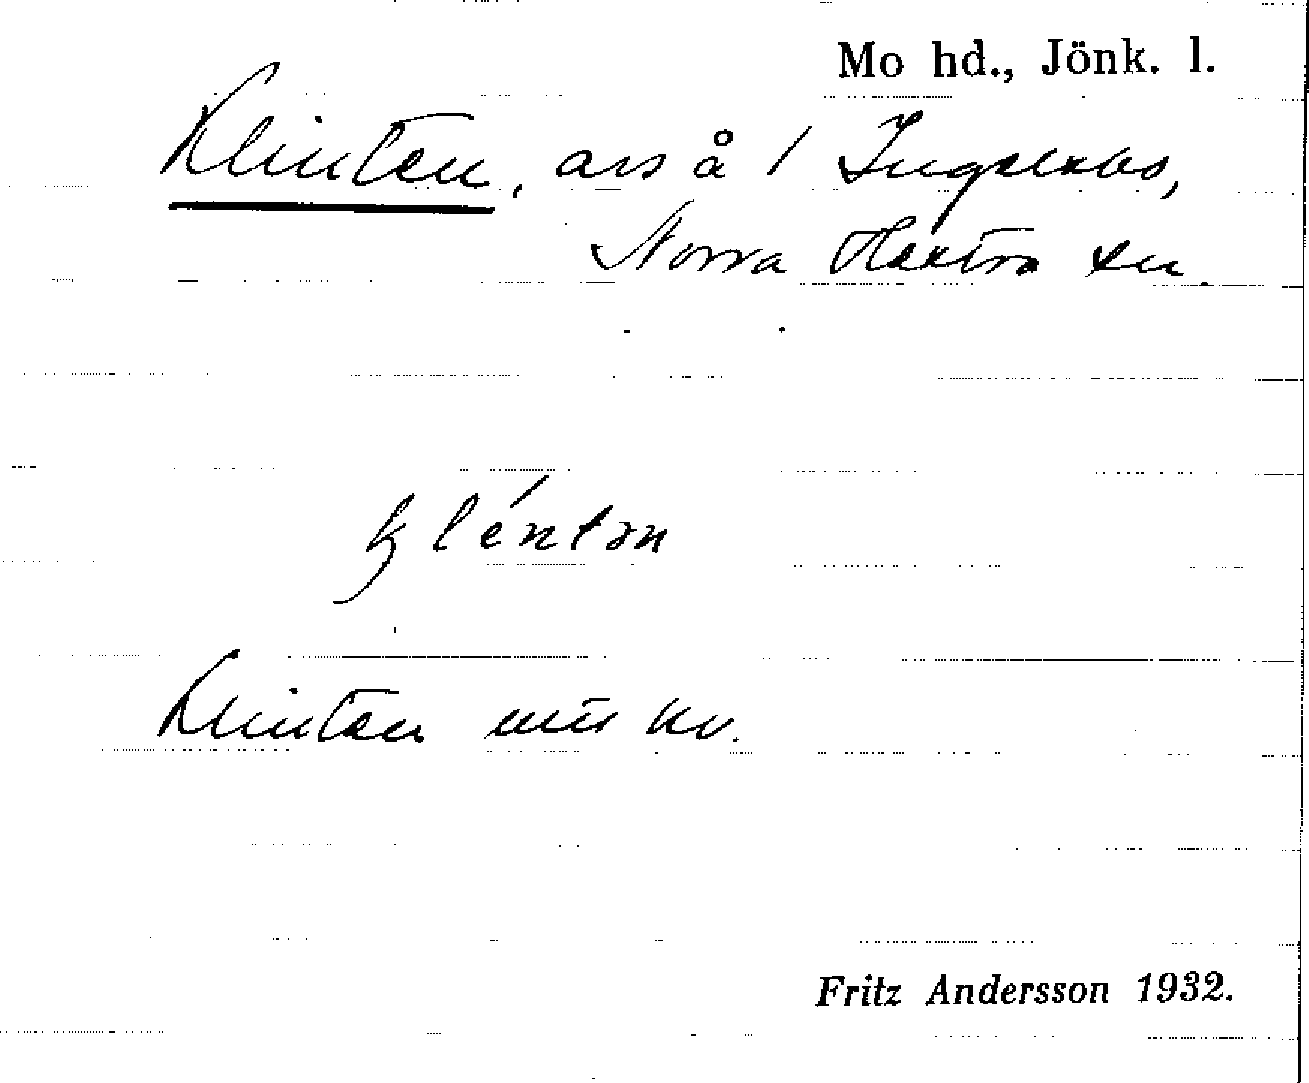 Mo hd., Jönk. l.
Klinten, avs å 1 Ingelsbo,
Norra Hestra sn.
klénton
Klinten mis kv.
Fritz Andersson 1932.